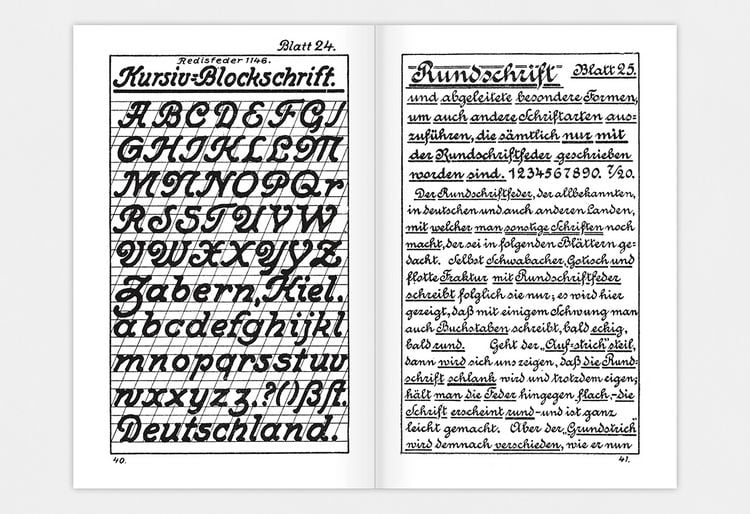 Blatt 24.
Redisfeder 1146.
Kursiv=Blockschrift.
ABCDEFG
GHJKLLM
MNNOPQr
RSSTUVW
VWXXYyZ
Zabern, Kiel.
abcdefghijkl
mnopqrsstuv
wxxyzz.?()ßſt.
Deutschland.
40.
Rundschrift Blatt 25.
und abgeleitete besondere Formen,
um auch andere Schriftarten aus=
zuführen, die sämtlich nur mit
der Rundschriftfeder geschrieben
worden sind. 1234567890. 7/20.
Der Rundschriftfeder, der allbekannten,
in deutschen und auch anderen Landen,
mit welcher man sonstige Schriften noch
macht, der sei in folgenden Blättern ge=
dacht. Selbst Schwabacher, Gotisch und
flotte Fraktur mit Rundschriftfeder
schreibt folglich sie nur; es wird hier
gezeigt, daß mit einigem Schwung man
auch Buchstaben schreibt, bald eckig,
bald rund. Geht der „Auf-strich" steil,
dann wird sich uns zeigen, daß die Rund=
schrift schlank wird und trotzdem eigen;
hält man die Feder hingegen flach,-die
Schrift erscheint rund-und ist ganz
leicht gemacht. Aber der „Grundstrich"
wird demnach verschieden, wie er nun
41.